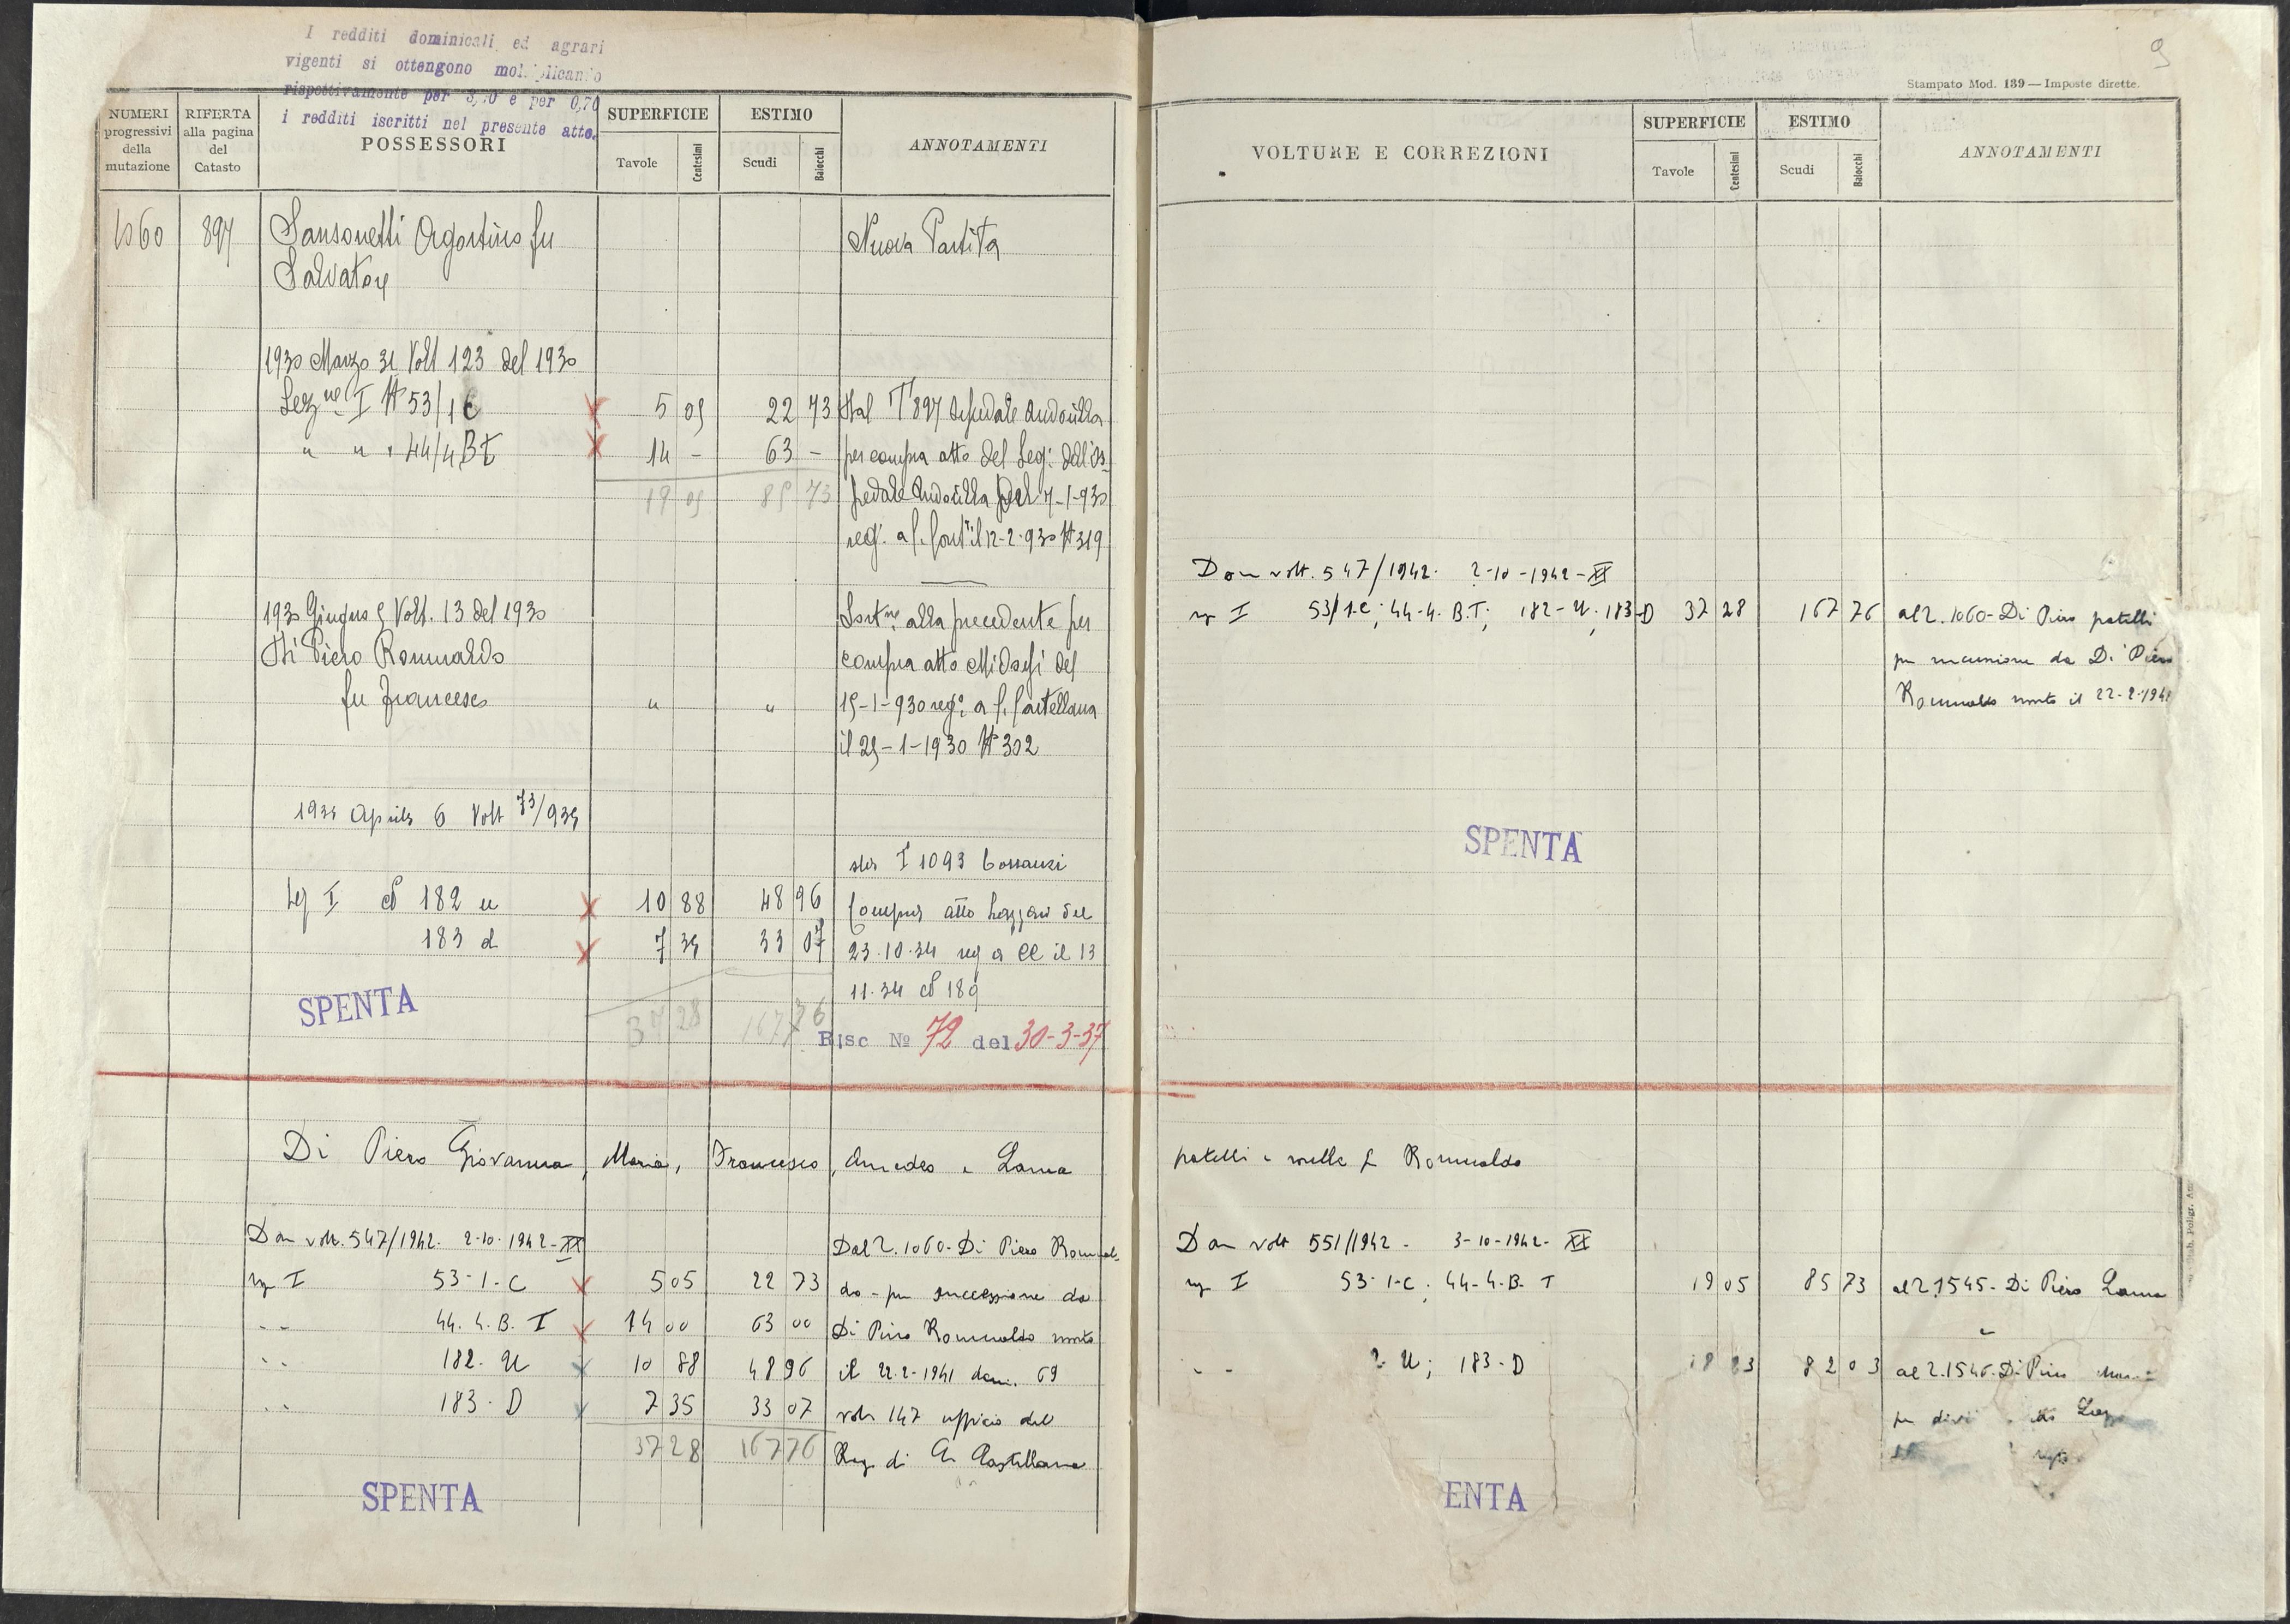 I redditi dominicali ed agrari
vigenti si ottengono moltiplicando
rispettivamente per 3,70 e per 0,70
i redditi iscritti nel presente atto.
NUMERI progressivi della mutazione
RIFERTA alla pagina del Catasto
POSSESSORI
SUPERFICIE
Tavole Centesimi
ESTIMO
Scudi Baiocchi
ANNOTAMENTI
1060 897 Sansonetti Agostino fu Nuova Partita
Salvatore
1930 Marzo 31 Volt 123 del 1930
Sez ne I N 53/1 C 5 05 22 73 Dal T 897 Ospedale Andosilla
" " " 44/4 B t 14 - 63 - per compra atto del Seg. dell'Os
19 05 85 73 pedale Andosilla del 7-1-930
reg. a C. Cast il 12-2-930 N 319
1930 Giugno 5 Volt. 13 del 1930 alla precedente per
Di Piero Romualdo compra atto Midossi del
fu Francesco " " 15-1-930 reg. a C. Castellana
il 25-1-1930 N 302
1935 Aprile 6 Volt 73/935
T 1093
Sez I N 182 u 10 88 48 96 Compra atto Lazzari del
183 d 7 35 33 07 23.10.34 reg a CC il 13
11.34 N 189
SPENTA
37 28 167 76
Risc No 72 del 30-3-37
Di Piero Giovanna, Maria, Francesco, Amedeo e Laura
Don volt. 547/1942. 2-10-1942-XX Dal 2. 1060-Di Piero Romual
sez I 53-1-C 5 05 22 73 do - per successione da
" " 44. 4. B. T 14 00 63 00 Di Piero Romualdo morto
" " 182. U 10 88 48 96 il 22.2-1941 den. 69
" " 183. D 7 35 33 07 vol. 147 ufficio del
37 28 167 76 Reg. di C. Castellana
SPENTA
9
Stampato Mod. 139 — Imposte dirette.
VOLTURE E CORREZIONI
SUPERFICIE
Tavole Centesimi
ESTIMO
Scudi Baiocchi
ANNOTAMENTI
Don volt. 547/1942. 2-10-1942-XX
sez I 53/1-C; 44-4. B.T; 182-U; 183-D 37 28 167 76 al 2. 1060-Di Piero fratelli
per successione da Di Piero
Romualdo morto il 22-2-1941
SPENTA
fratelli e sorelle fu Romualdo
Don volt 551/1942 - 3-10-1942- XX
sez I 53-1-C; 44-4-B-T 19 05 85 73 al 2.1545-Di Piero Laura
e
" " 2-U; 183-D 18 23 82 03 al 2.1546-Di Piero
per
ENTA